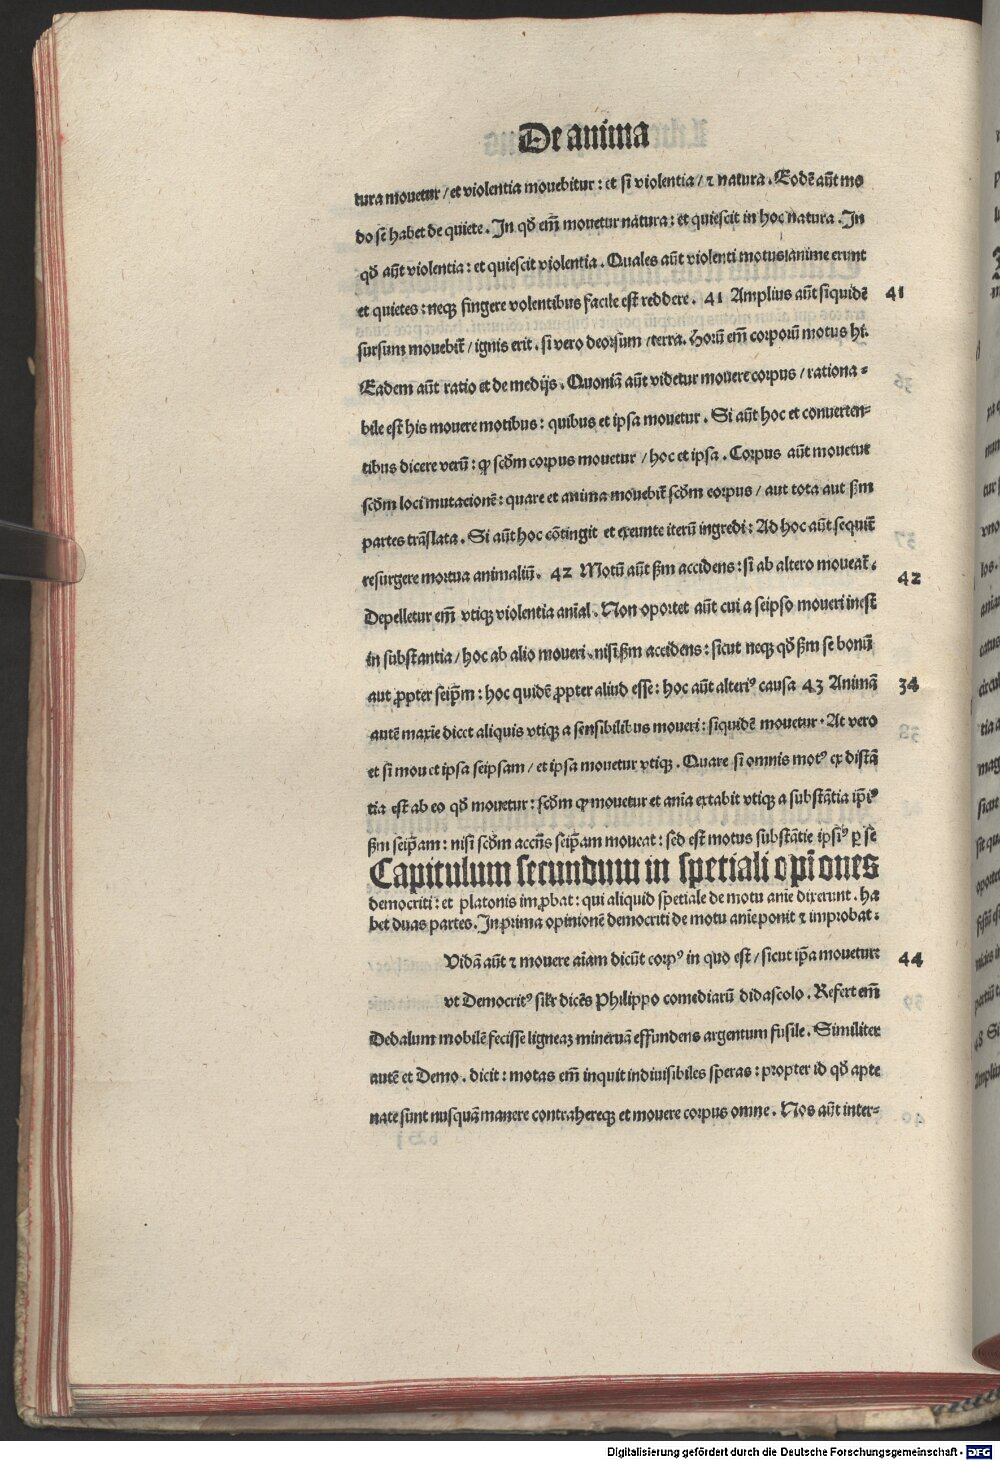 De anima
tura mouetur / et violentia mouebitur : et si violentia / ⁊ natura . Eodē aūt mo
do sē habet de quiete . In qđ em̄ mouetur natura : et quiescit in hoc natura . In
qđ aūt violentia : et quiescit violentia . Quales aūt violenti motus anime erunt
et quietes : neqꝫ fingere volentibus facile est reddere . 41 Amplius aūt siquidē
41
sursum mouebit̄ / ignis erit . si vero deorsum / terra . Horū em̄ corporū motus hi .
Eadem aūt ratio et de medijs . Quoniā aūt videtur mouere corpus / rationa⸗
bile est his mouere motibus : quibus et ipsa mouetur . Si aūt hoc et conuerten⸗
tibus dicere verū : ꝙ scđm corpus mouetur / hoc et ipsa . Corpus aūt mouetur
scđm loci mutacionē : quare et anima mouebit̄ scđm corpus / aut tota aut ẜm
partes trāslata . Si aūt hoc cōtingit et exeunte iterū ingredi : Ad hoc aūt sequit̄
resurgere mortua animaliū . 42 Motū aūt ẜm accidens : si ab altero moueat̄ .
42
Depelletur em̄ vtiqꝫ violentia anīal . Non oportet aūt cui a seipso moueri inest
in substantia / hoc ab alio moueri . nisi ẜm accidens : sicut neqꝫ qđ ẜm se bonū
aut ꝓpter seip̄m : hoc quidē ꝓpter aliud esse : hoc aūt alteriꝰ causa 43 Animā
34
autē maxīe dicet aliquis vtiqꝫ a sensibilibus moueri : siquidē mouetur . At vero
et si mouet ipsa seipsam / et ipsa mouetur vtiqꝫ . Quare si omnis motꝰ ex distā
tia est ab eo qđ mouetur : scđm ꝙ mouetur et anīa extabit vtiqꝫ a substātia ip̄iꝰ
ẜm seip̄am : nisi scđm accn̄s seip̄am moueat : sed est motus substātie ipsiꝰ ꝑ se
Capitulum secundum in spetiali opīones
democriti : et platonis im̄ꝓbat : qui aliquid spetiale de motu anīe dixerunt . ha
bet duas partes . In prima opinionē democriti de motu anīe ponit ⁊ improbat .
Vidā aūt ⁊ mouere aīam dicūt corpꝰ in quo est / sicut ip̄a mouetur :
44
vt Democritꝰ sil̄r dicēs Philippo comediarū didascolo . Refert em̄
Dedalum mobilē fecisse ligneaꝫ mineruā effundens argentum fusile . Similiter
autē et Demo . dicit : motas em̄ inquit indiuisibiles speras : propter id qđ apte
nate sunt nusquā manere contrahereqꝫ et mouere corpus omne . Nos aūt inter⸗
Digitalisierung gefördert durch die Deutsche Forschungsgemeinschaft - DFG